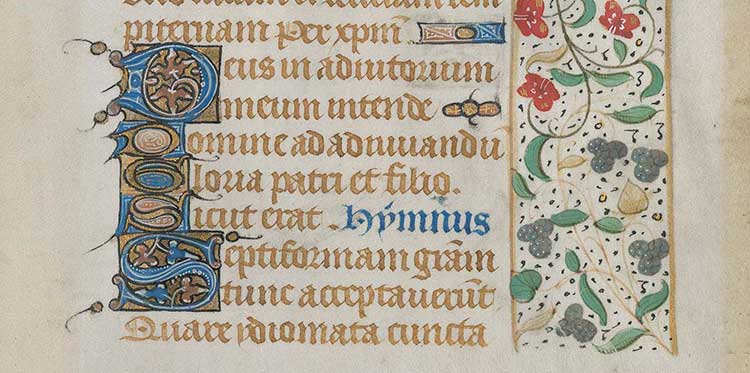 piternam per xp̄m
Deus in adiutorium
meum intende
Domine ad adiuuandū
Gloria patri et filio.
Sicut erat. Hymnus
Septiformam grām
tunc acceptauerūt
Quare ydiomata cuncta